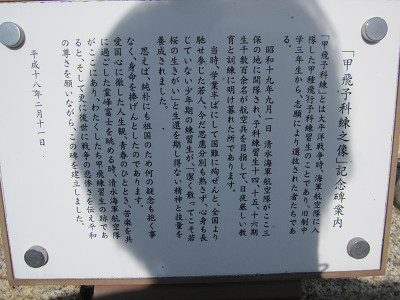 「甲飛予科練之像」記念碑案内
「甲飛予科練」とは太平洋戦争時、海軍航空隊に入
隊した甲種飛行予科練習生のことであり、旧制中
学三年生から、志願により選抜された者たちであ
る。
昭和十九年九月一日　清水海軍航空隊がここ三
保の地に開隊され、予科練習生十四、十五、十六期
生千数百余名が航空兵を目指して、日夜厳しい教
育と訓練に明け暮れた所であります。
当時、学業半ばにして国難に殉ぜんと、全国より
馳せ参じた若人、今だ思慮分別も熟さず、心身も長
じていない少年期の練習生が、「潔く散ってこそ若
桜の生きがい」と生還を期し得ない精神と技量を
養成されました。
思えば、純朴にも祖国のため何の疑念も抱く事
なく、身命を捧げんとしたのであります。
愛国心に徹した人生観、青春のひととき、苦楽を共
に過ごした霊峰富士を眺める時、清水海軍航空隊
がここにあり、わたくしたち甲飛練習生の跡であ
ると、そして更に後世に戦争の悲惨さを伝え平和
の尊さを願いながら、この碑を建立しました。
平成十八年二月十一日